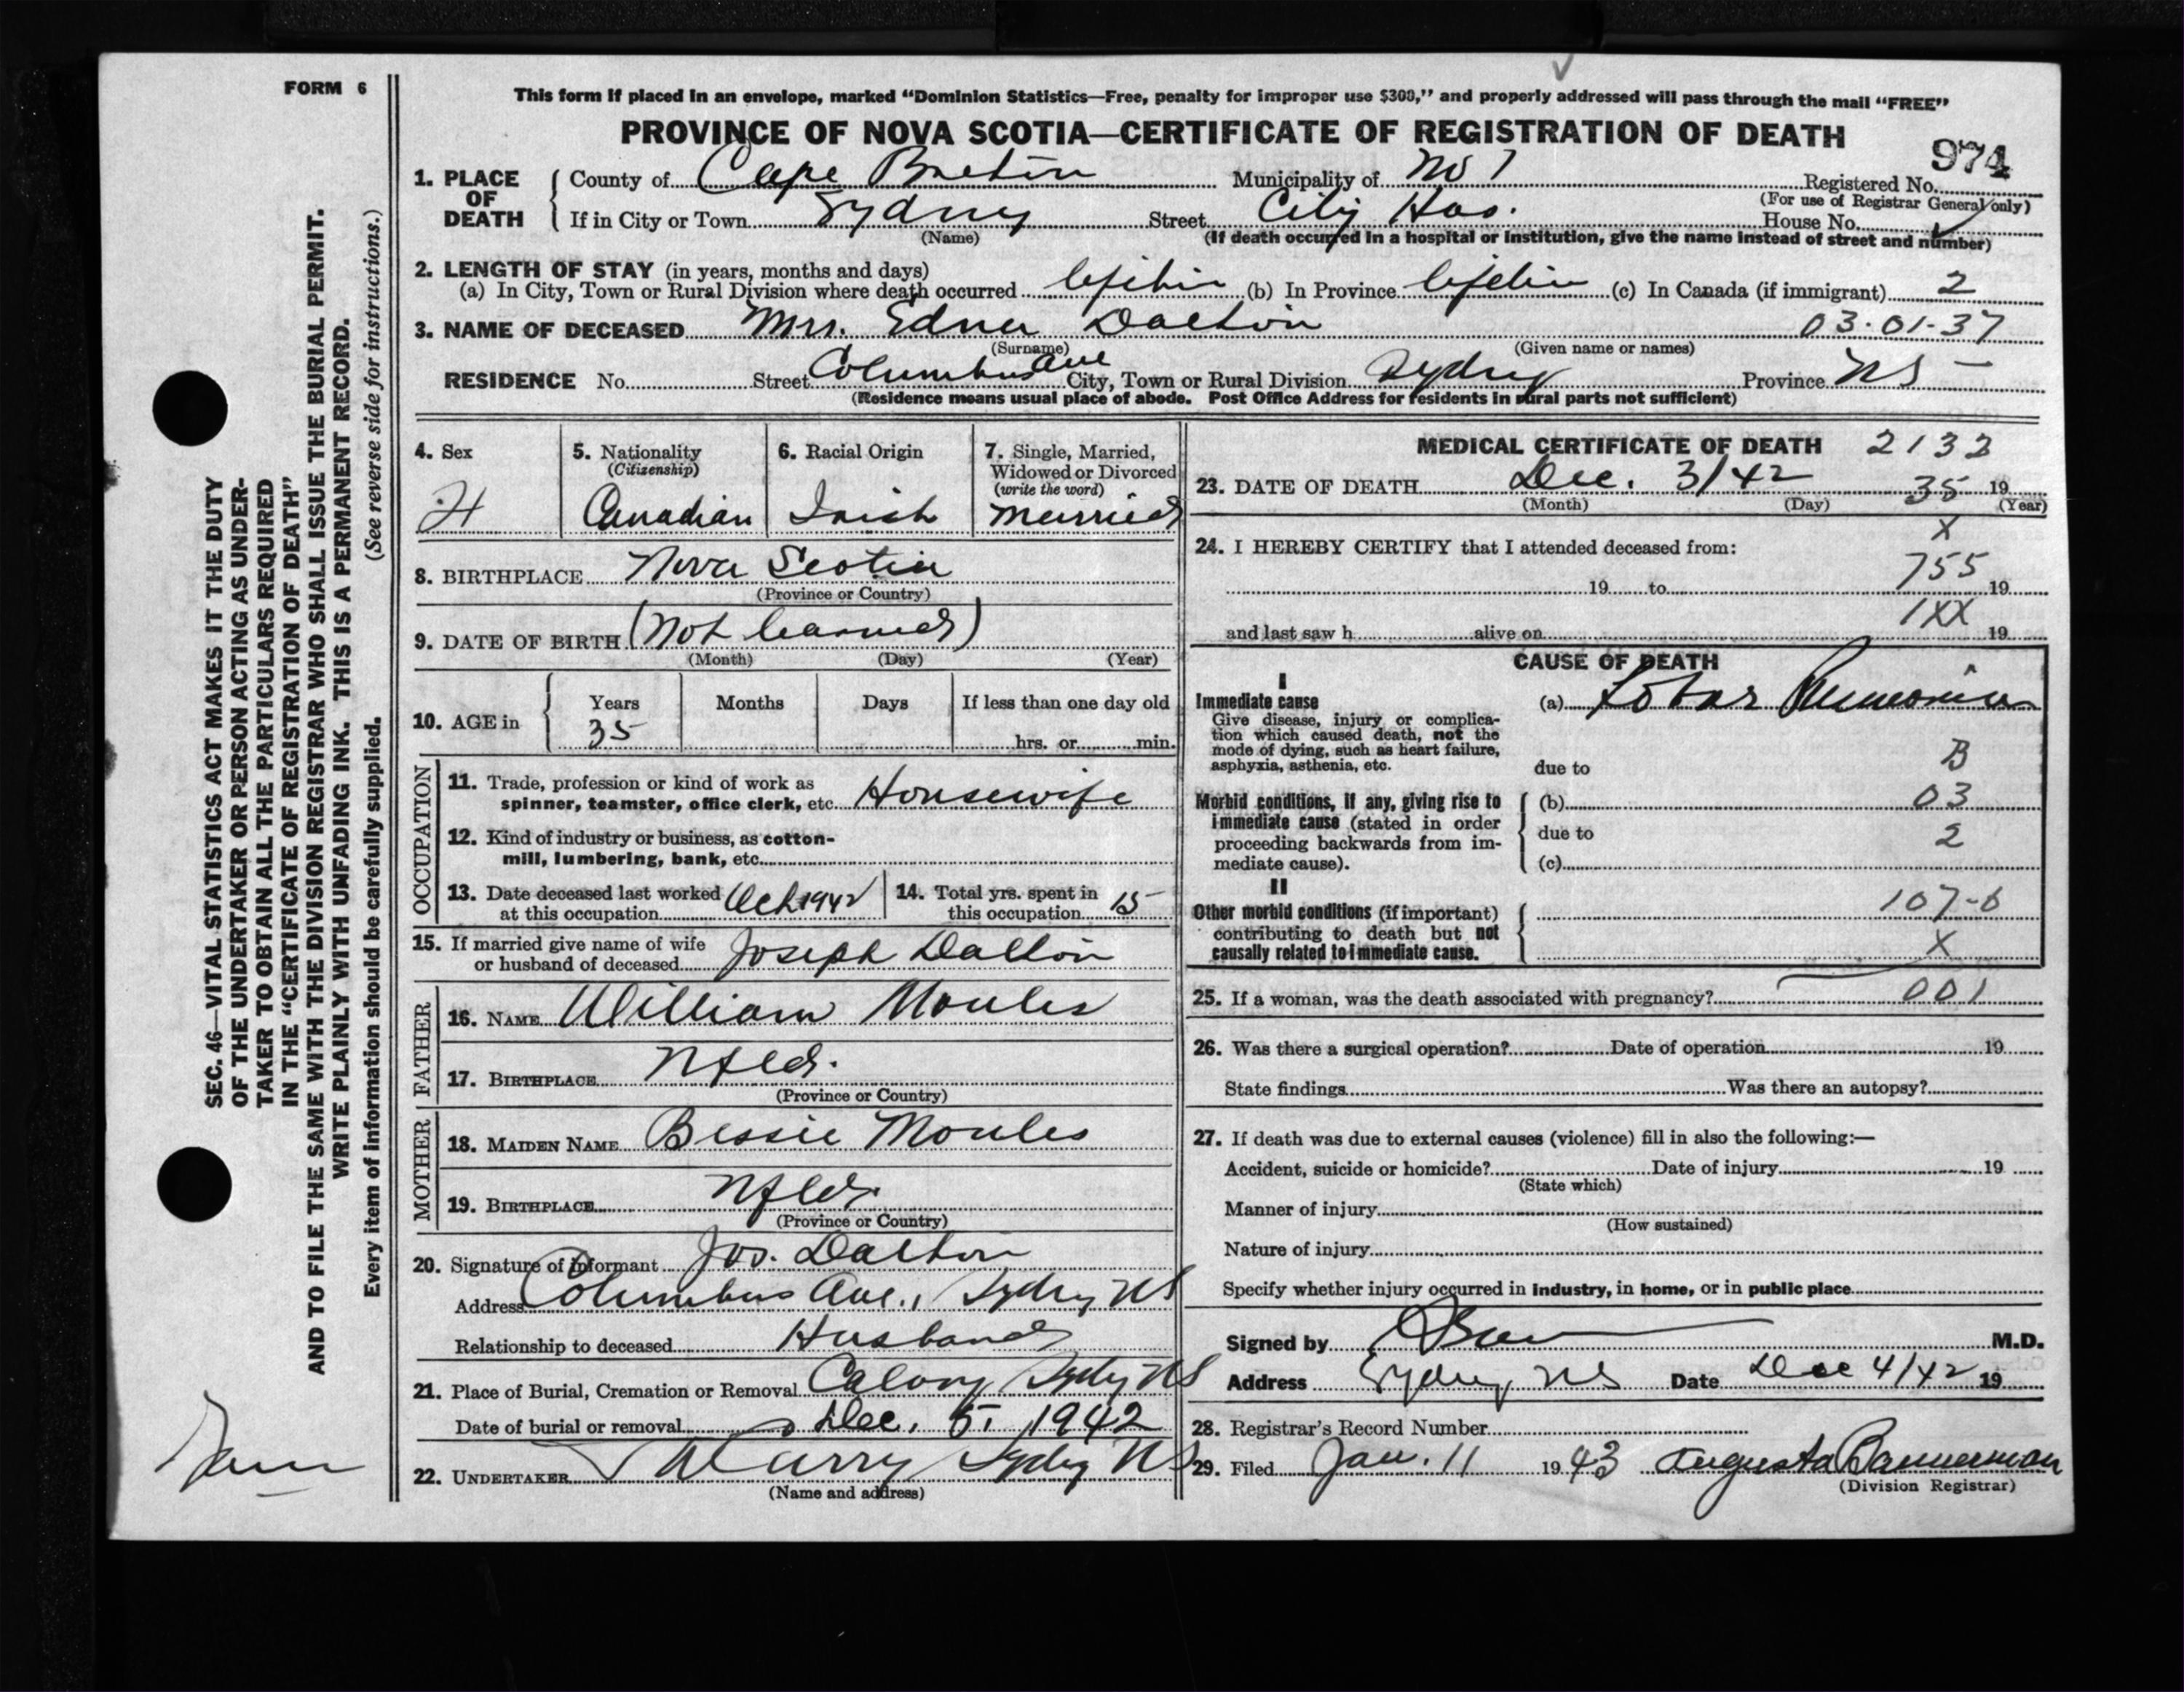 FORM 6
This form if placed in an envelope, marked "Dominion Statistics—Free, penalty for improper use $300," and properly addressed will pass through the mail "FREE"
PROVINCE OF NOVA SCOTIA—CERTIFICATE OF REGISTRATION OF DEATH
974
1. PLACE OF DEATH { County of Cape Breton Municipality of No 7 Registered No.
(For use of Registrar General only)
If in City or Town Sydney Street City Hos. House No.
(Name) (If death occurred in a hospital or institution, give the name instead of street and number)
2. LENGTH OF STAY (in years, months and days)
(a) In City, Town or Rural Division where death occurred lifetime (b) In Province lifetime (c) In Canada (if immigrant) 2
3. NAME OF DECEASED Mrs. Edna Dalton 03-01-37
(Surname) (Given name or names)
RESIDENCE No. Street Columbus Ave City, Town or Rural Division Sydney Province NS
(Residence means usual place of abode. Post Office Address for residents in rural parts not sufficient)
4. Sex
5. Nationality (Citizenship) Canadian
6. Racial Origin Irish
7. Single, Married, Widowed or Divorced (write the word) Married
8. BIRTHPLACE Nova Scotia
(Province or Country)
9. DATE OF BIRTH (Not learned)
(Month) (Day) (Year)
10. AGE in { Years Months Days If less than one day old
35 hrs. or min.
OCCUPATION
11. Trade, profession or kind of work as
spinner, teamster, office clerk, etc. Housewife
12. Kind of industry or business, as cotton-
mill, lumbering, bank, etc.
13. Date deceased last worked at this occupation Oct 1942
14. Total yrs. spent in this occupation 15
15. If married give name of wife
or husband of deceased Joseph Dalton
FATHER
16. NAME William Moules
17. BIRTHPLACE Nfld.
(Province or Country)
MOTHER
18. MAIDEN NAME Bessie Moules
19. BIRTHPLACE Nfld.
(Province or Country)
20. Signature of Informant Jos. Dalton
Address Columbus Ave., Sydney NS
Relationship to deceased Husband
21. Place of Burial, Cremation or Removal Calvary Sydney NS
Date of burial or removal Dec. 5, 1942
22. UNDERTAKER Sydney NS
(Name and address)
MEDICAL CERTIFICATE OF DEATH 2132
23. DATE OF DEATH Dec. 3/42 35 19
(Month) (Day) (Year)
X
24. I HEREBY CERTIFY that I attended deceased from:
755
19 to 19
1XX
and last saw h alive on 19
CAUSE OF DEATH
I
Immediate cause (a) Lobar Pneumonia
Give disease, injury or complica-
tion which caused death, not the
mode of dying, such as heart failure,
asphyxia, asthenia, etc.
due to B
Morbid conditions, if any, giving rise to (b) 03
immediate cause (stated in order due to 2
proceeding backwards from im-
mediate cause). (c)
II
Other morbid conditions (if important) 107-6
contributing to death but not
causally related to immediate cause. X
25. If a woman, was the death associated with pregnancy? 001
26. Was there a surgical operation? Date of operation 19
State findings Was there an autopsy?
27. If death was due to external causes (violence) fill in also the following:—
Accident, suicide or homicide? Date of injury 19
(State which)
Manner of injury
(How sustained)
Nature of injury
Specify whether injury occurred in industry, in home, or in public place
Signed by M.D.
Address Sydney, NS Date Dec 4/42 19
28. Registrar's Record Number
29. Filed Jan. 11 1943 Augusta Bannerman
(Division Registrar)
SEC. 46—VITAL STATISTICS ACT MAKES IT THE DUTY
OF THE UNDERTAKER OR PERSON ACTING AS UNDER-
TAKER TO OBTAIN ALL THE PARTICULARS REQUIRED
IN THE "CERTIFICATE OF REGISTRATION OF DEATH"
AND TO FILE THE SAME WITH THE DIVISION REGISTRAR WHO SHALL ISSUE THE BURIAL PERMIT.
WRITE PLAINLY WITH UNFADING INK. THIS IS A PERMANENT RECORD.
Every item of information should be carefully supplied. (See reverse side for instructions.)